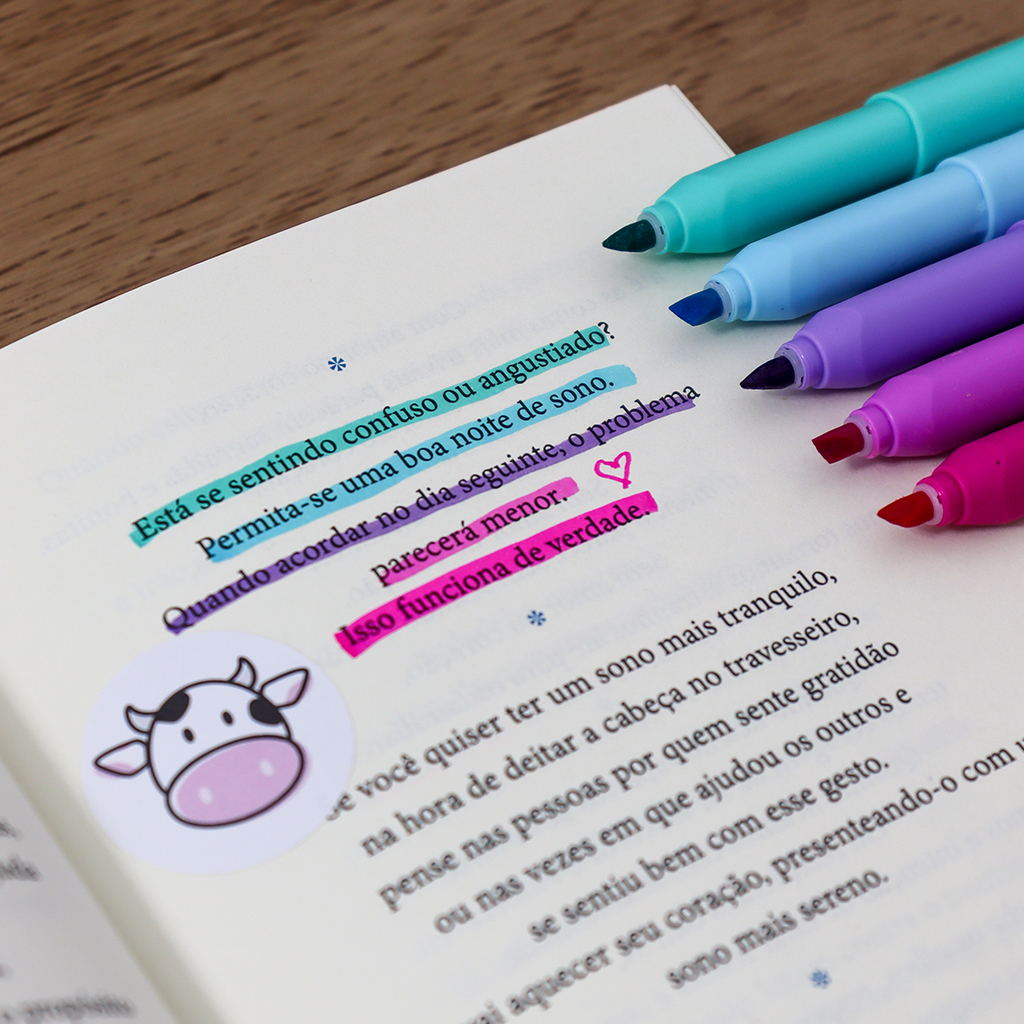 *
Está se sentindo confuso ou angustiado?
Permita-se uma boa noite de sono.
Quando acordar no dia seguinte, o problema
parecerá menor.
Isso funciona de verdade.
*
Se você quiser ter um sono mais tranquilo,
na hora de deitar a cabeça no travesseiro,
pense nas pessoas por quem sente gratidão
ou nas vezes em que ajudou os outros e
se sentiu bem com esse gesto.
aquecer seu coração, presenteando-o com
sono mais sereno.
*
propósito